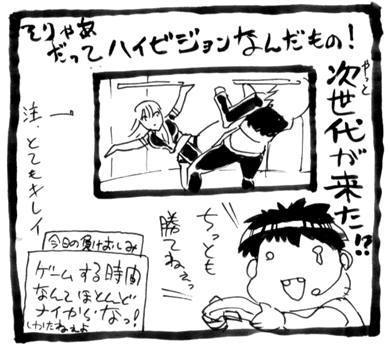 そりゃあ
だってハイビジョンなんだもの!
やっと
次世代が来た!?
注、とてもキレイ
ちっとも
勝てねぇっ
今日の負けおしみ
ゲームする時間
なんてほとんど
ナイからなっ!
しかたねぇよ